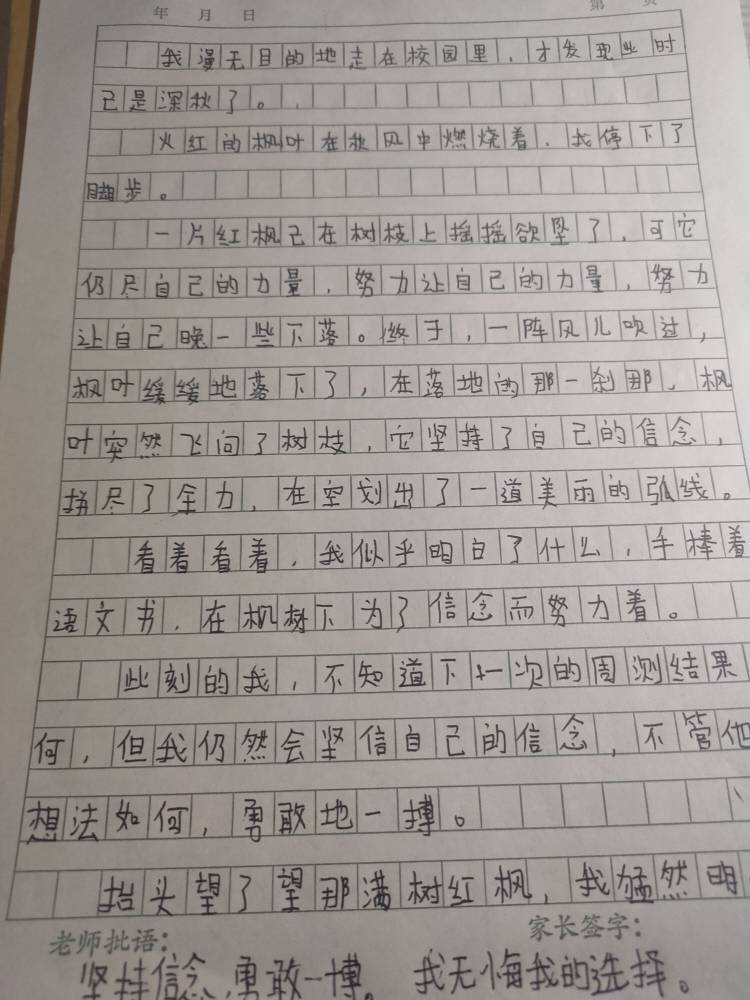 年 月 日 第 页
我漫无目的地走在校园里，才发现此时
已是深秋了。
火红的枫叶在秋风中燃烧着，我停下了
脚步。
一片红枫已在树枝上摇摇欲坠了，可它
仍尽自己的力量，努力让自己的力量，努力
让自己晚一些下落。终于，一阵风儿吹过，
枫叶缓缓地落下了，在落地的那一刹那，枫
叶突然飞向了树枝，它坚持了自己的信念，
拼尽了全力，在空划出了一道美丽的弧线。
看着看着，我似乎明白了什么，手捧着
语文书，在枫树下为了信念而努力着。
此刻的我，不知道下一次的周测结果
何，但我仍然会坚信自己的信念，不管他
想法如何，勇敢地一搏。
抬头望了望那满树红枫，我猛然明
老师批语： 家长签字：
坚持信念，勇敢一搏。我无悔我的选择。